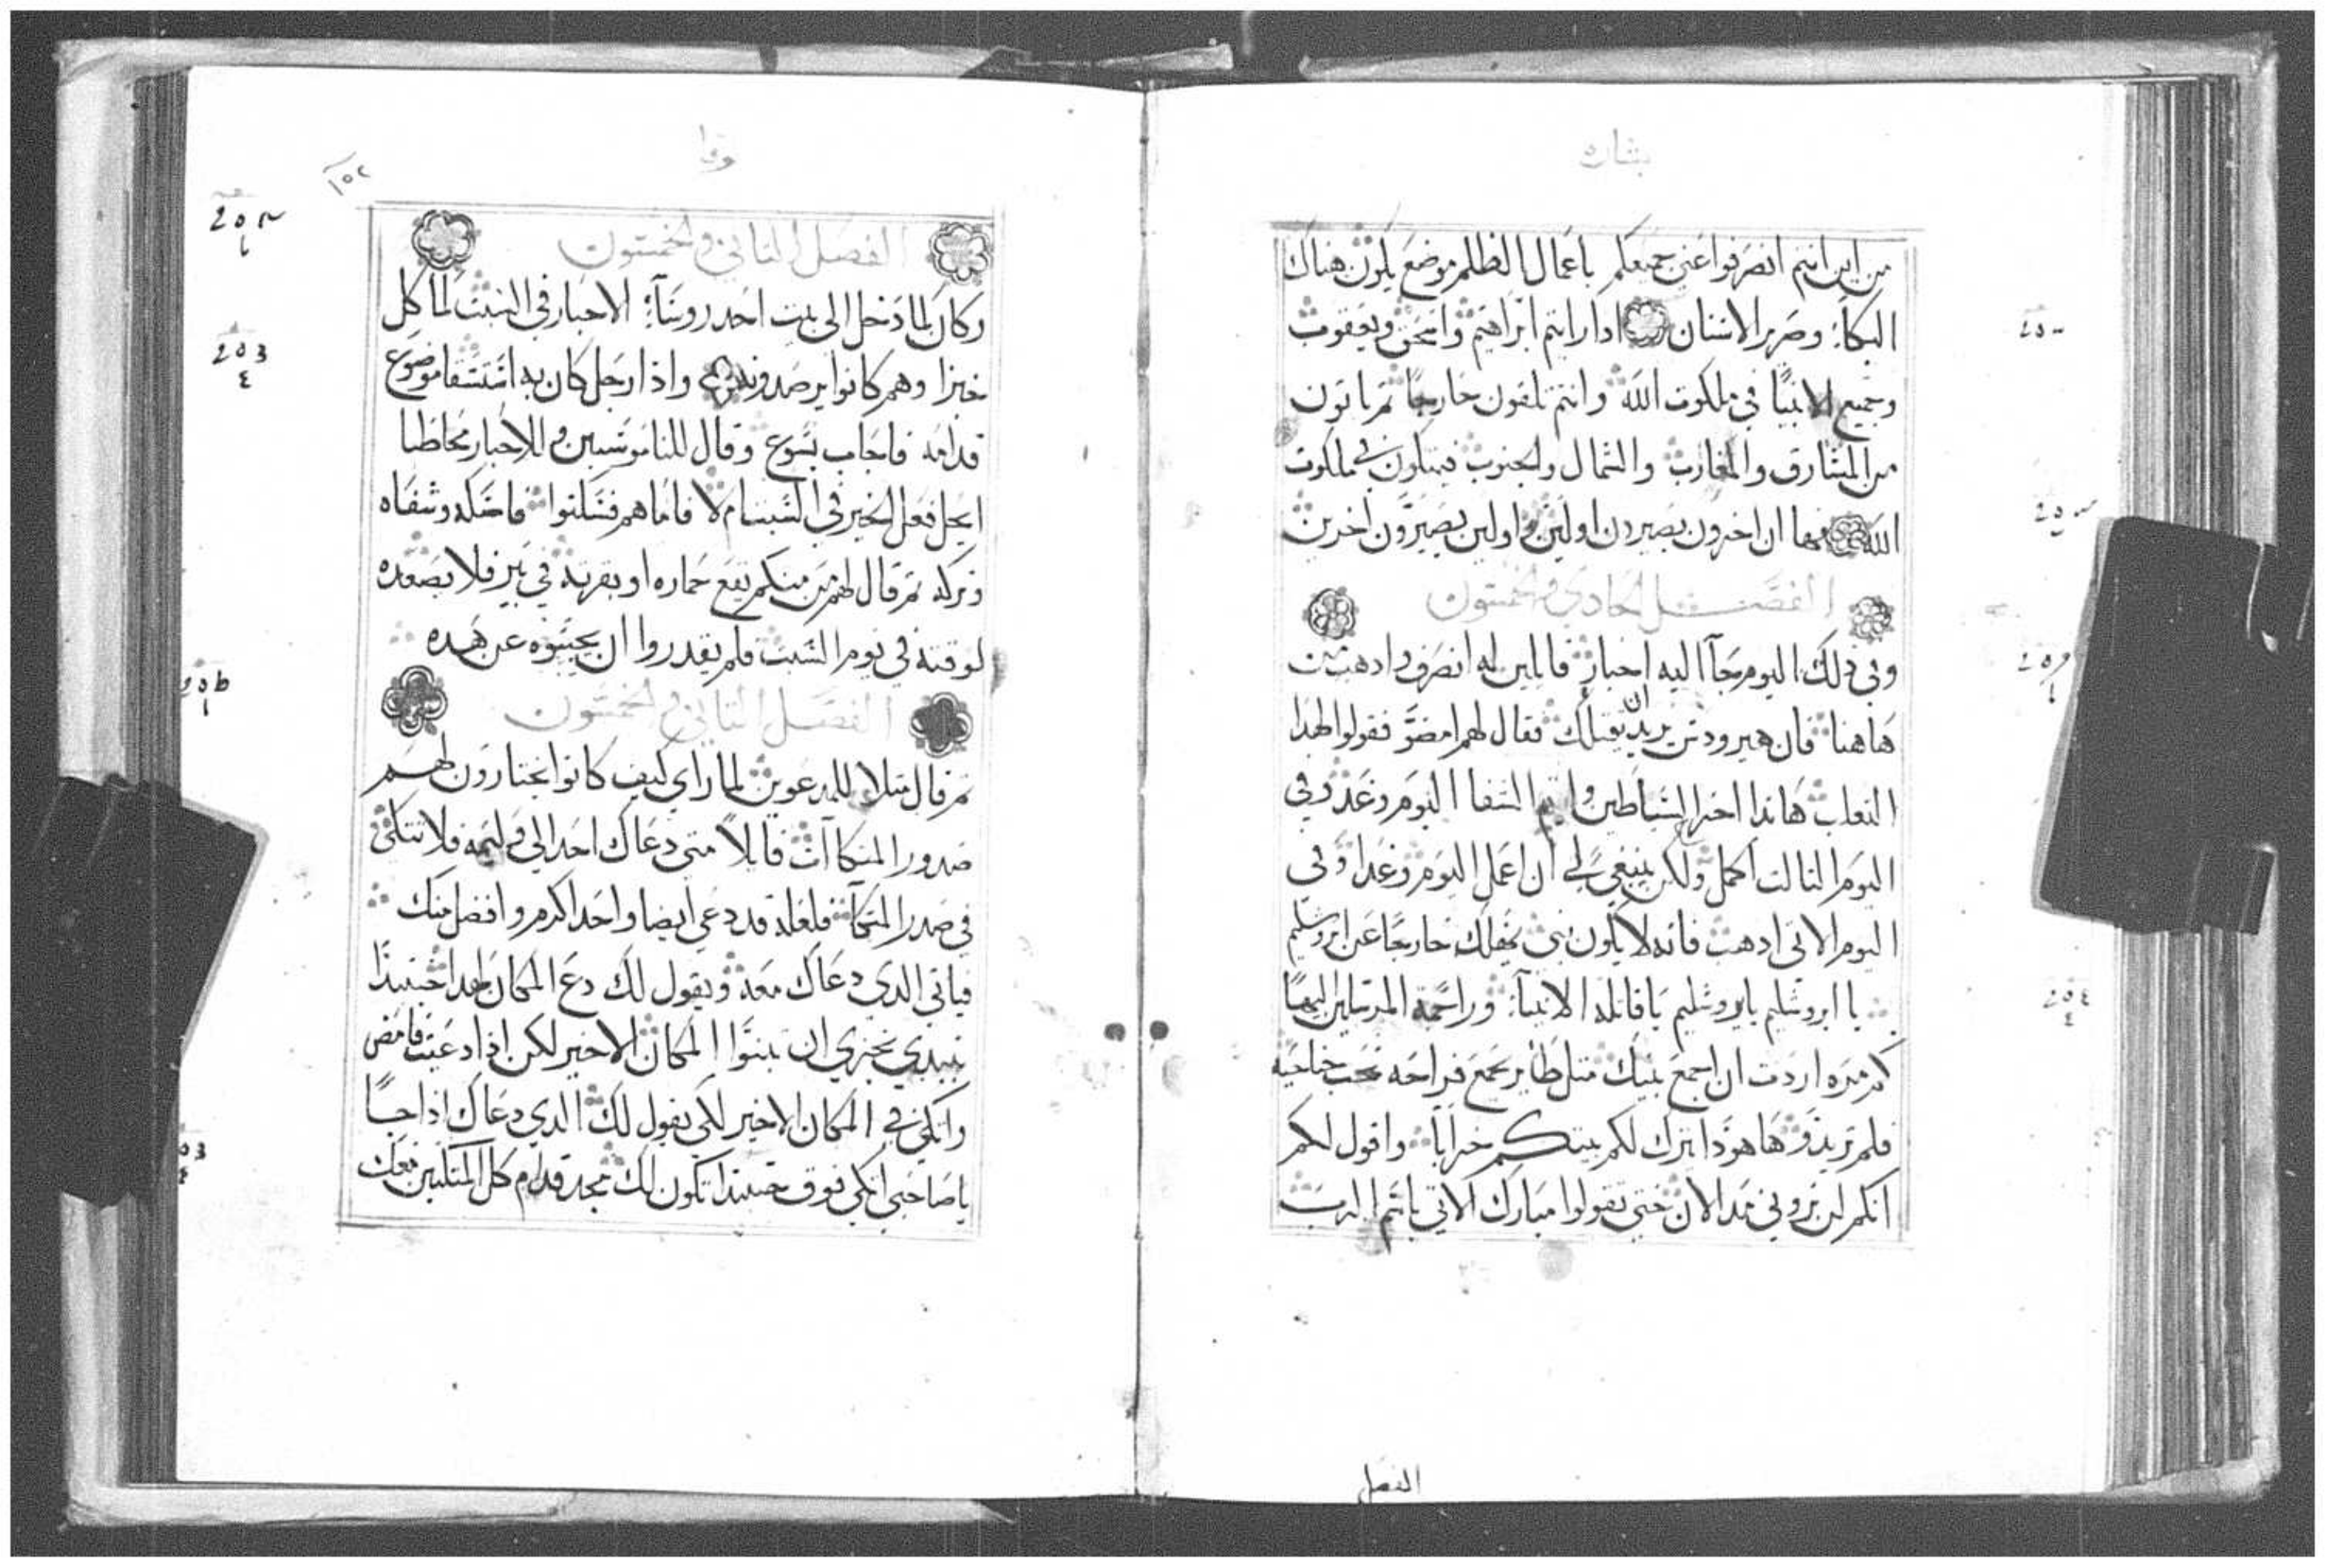 بشاره
من اين انتم انصرفوا عني جميعكم ياعمال الظلم موضع يكون هناك
البكاء وصرير الاسنان ادا رايتم ابراهيم واسحق ويعقوب
وجميع الانبيا في ملكوت الله وانتم تلقون خارجا ثم ياتون
من المشارق والمغارب والشمال والجنوب فيتكون في ملكوت
الله فها ان اخرون يصيرون اولين واولين يصيرون اخرين
الفصل الحادي والخمسون
وفي دلك اليوم جآ اليه احبار قايلين له انصرف وادهب من
هاهنا فان هيرودس يريد ان يقتلك فقال لهم امضو فقولوا لهدا
الثعلب هاندا اخرج الشياطين واتم الشفا اليوم وغد وفي
اليوم الثالث اكمل ولكن ينبغي لي ان اعمل اليوم وغدا وفي
اليوم الاتي ادهب فانه لا يكون نبي يهلك خارجا عن ايروشليم
يا ايروشليم يايروشليم ياقاتله الانبيآ وراجمة المرسلين اليها
كم مره اردت ان اجمع بنيك مثل طاير يجمع فراخه تحت جناحيه
فلم تريدو هاهودا يترك لكم بيتكم خرابا واقول لكم
انكم لن تروني مند الان حتي تقولوا مبارك الاتي باسم الرب
الفصل
لوقا
١٥٢
الفصل الثاني والخمسون
وكان لما دخل الي بيت احد روسآء الاحبار في السبت لياكل
خبزا وهم كانوا يرصدونه واذا رجل كان به استسقا موضوع
قدامه فاجاب يسوع وقال للناموسيين وللاحبار مخاطبا
ايحل فعل الخير في السبت ام لا فاما هم فسكتوا فامسكه وشفاه
وتركه ثم قال لهم من منكم تقع حماره او بقرته في بير فلا يصعده
لوقته في يوم السبت فلم يقدروا ان يجيبوه عن هده
الفصل الثاني والخمسون
ثم قال مثلا للمدعوين لما راي كيف كانوا يختارون لهم
صدور المتكاآت قايلا متي دعاك احد الي وليمه فلا تتكي
في صدر المتكآ فلعله قد دعي ايضا واحد اكرم وافضل منك
فياتي الدي دعاك معه ويقول لك دع المكان لهدا حينيدا
تبتدي بخزي ان تبتوا المكان الاخير لكن ادا دعيت فامض
واتكي في المكان الاخير لكي يقول لك الدي دعاك ادا جا
ياصاحبي اتكي فوق حينيدا تكون لك مجد قدام كل المتكيين معك